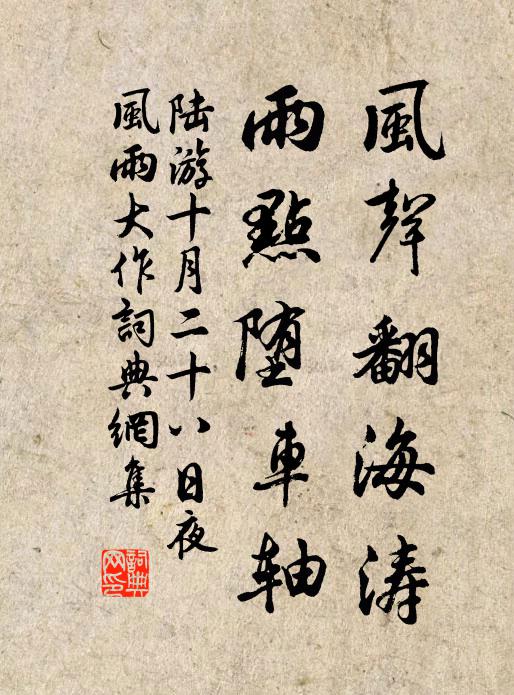 風聲翻海濤
雨點堕車轴
陆游十月二十八日夜
風雨大作詞典網集
詞典
网印